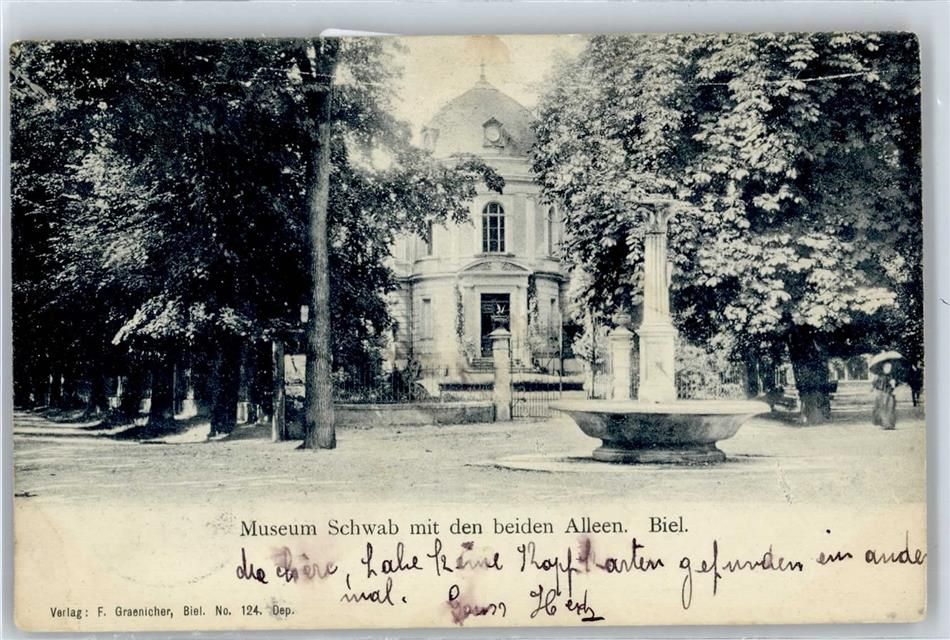 Museum Schwab mit den beiden Alleen. Biel.
habe keine Kopfkarten gefunden ein ander
mal. Gruss
Verlag: F. Graenicher, Biel. No. 124. Dep.